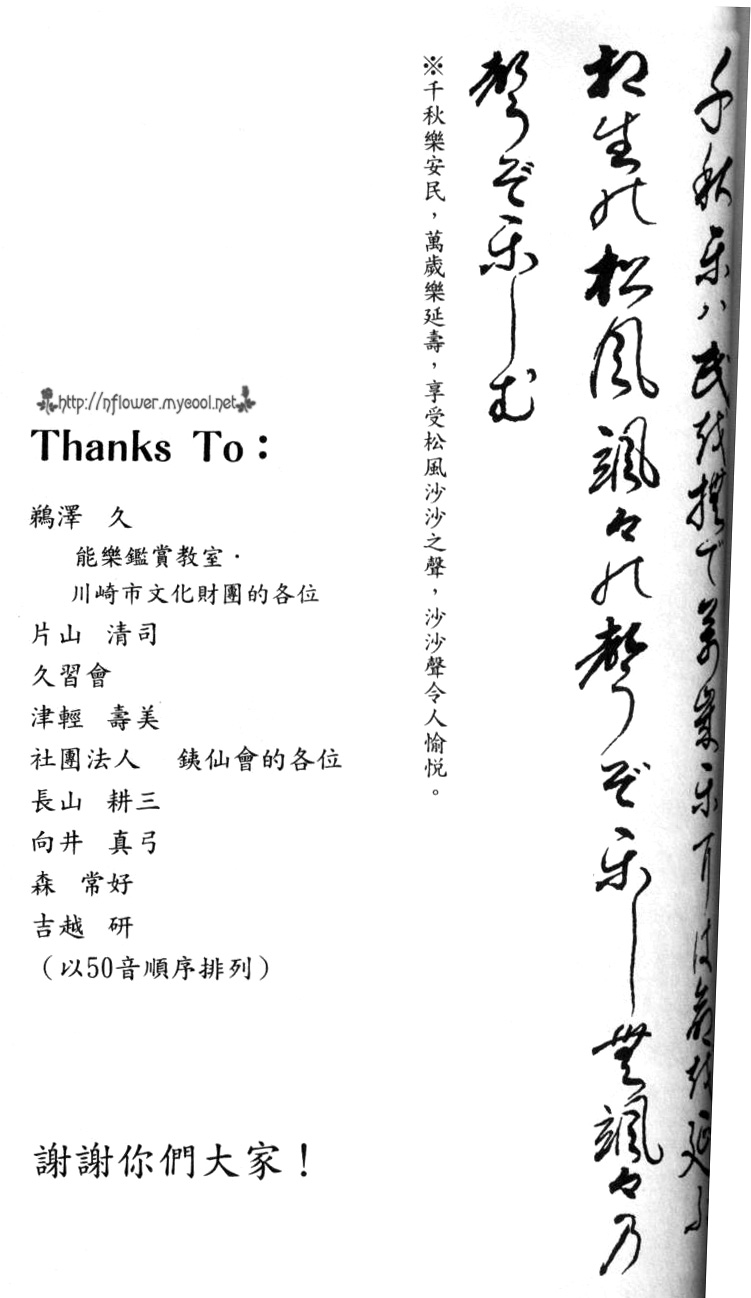 千秋楽ハ民越撫で萬歳楽
相生能松風颯々能聲ぞ楽し無颯々乃
聲ぞ楽しむ
※千秋樂安民，萬歲樂延壽，享受松風沙沙之聲，沙沙聲令人愉悅。
http://nflower.mycool.net
Thanks To：
鵜澤 久
能樂鑑賞教室．
川崎市文化財團的各位
片山 清司
久習會
津輕 壽美
社團法人 銕仙會的各位
長山 耕三
向井 真弓
森 常好
吉越 研
（以50音順序排列）
謝謝你們大家！